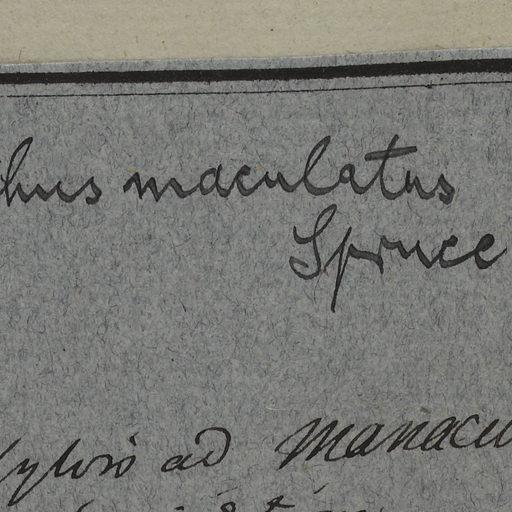 hus maculatus
Spruce
Sylvis ad Manacu